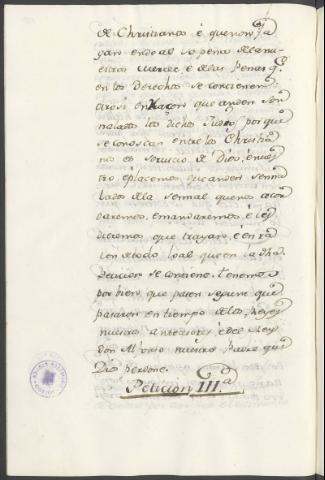 de Christianos é que non fa
gan ende al so pena de la nu-
estra merced é de las penas q.e
en los Derechos se contienen
Otrosi en razon que anden sen
nalados los dichos Judios, por que
se conoscan entre los Christia
nos es servicio de Dios, é nues
tro é placenos que anden senna
lados de la sennal que nos acor
daremos, é mandaremos, é les
diremos que trayan, é en ra
zon de todo lo al que en la dha.
Peticion se contiene. Tenemos
por bien, que pasen segunt que
pasaron en tiempo de los Reyes
nuestros antecesores é del Rey
Don Alfonso nuestro Padre que
Dios perdone.
Peticion III.a